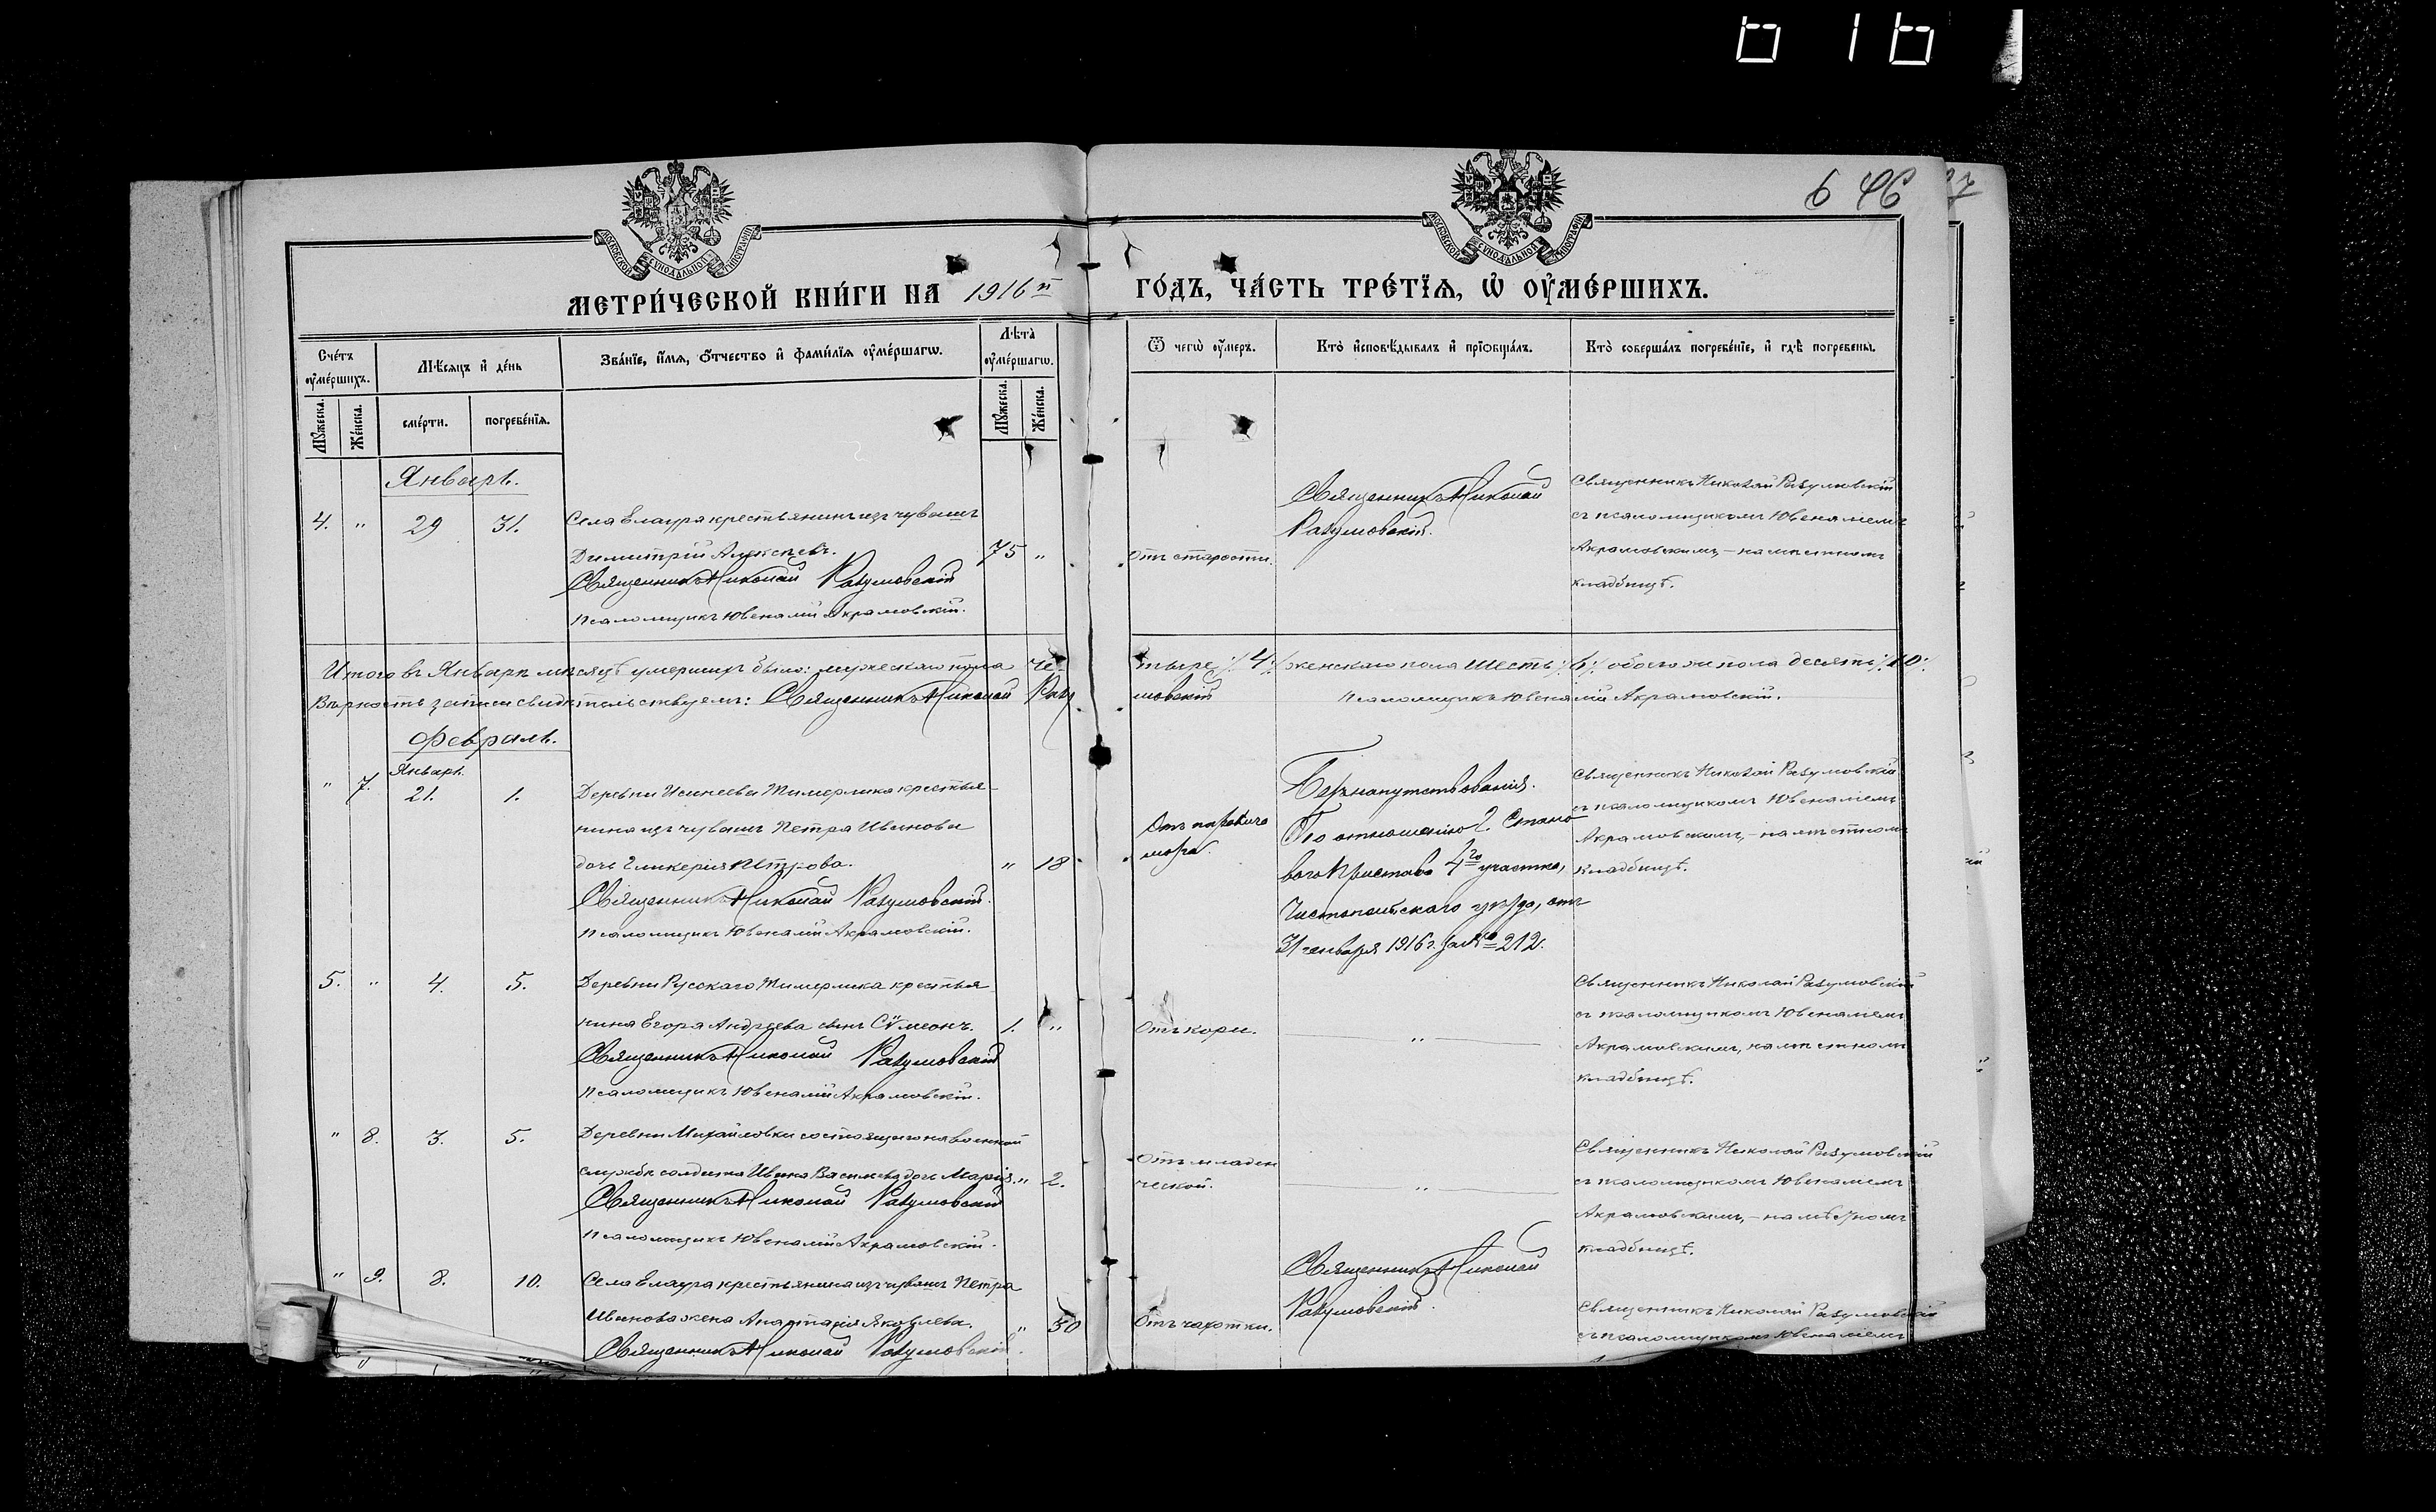 6 46
МОСКОВСКОЙ СѴНОДАЛЬНОЙ ТИПОГРАФІИ
МОСКОВСКОЙ СѴНОДАЛЬНОЙ ТИПОГРАФІИ
МЕТРИ́ЧЕСКОЙ КНИ́ГИ НА 1916й ГО́ДЪ, ЧА́СТЬ ТРЕ́ТЇѦ, Ѡ҆ ОУ҆МЕ́РШИХЪ.
Сче́тъ оу҆ме́ршихъ.
Мꙋ́жеска.
Же́нска.
Мѣ́сѧцъ и҆ де́нь
сме́рти.
погребе́нїѧ.
Зва́нїе, и҆́мѧ, ѻ҆́тчество и҆ фами́лїѧ оу҆ме́ршагѡ.
Лѣ́та оу҆ме́ршагѡ.
Мꙋ́жеска.
Же́нска.
Ѿ чегѡ̀ оу҆́меръ.
Кто̀ и҆сповѣ́дывалъ и҆ прїѡбща́лъ.
Кто̀ соверша́лъ погребе́нїе, и҆ гдѣ̀ погребены̀.
Январь.
4. " 29 31.
Села Елаура крестьянинъ изъ чувашъ
Димитрій Алексѣевъ.
75 "
Священникъ Николай Разумовскій
Псаломщикъ Ювеналій Акрамовскій.
Отъ старости.
Священникъ Николай
Разумовскій.
Священникъ Николай Разумовскій
съ псаломщикомъ Ювеналіемъ
Акрамовскимъ, - на мѣстномъ
кладбищѣ.
Итого въ Январѣ мѣсяцѣ умершихъ было: мужескаго пола четыре ٪ 4 ٪ женскаго пола шесть ٪ 6 ٪ обоего же пола десять ٪ 10 ٪
Вѣрность записи свидѣтельствуемъ: Священникъ Николай Разумовскій Псаломщикъ Ювеналій Акрамовскій.
Февраль.
Январь.
" 7. 21. 1.
Деревни Исинеева Тимерлика крестья-
нина изъ чувашъ Петра Иванова
дочь Гликерія Петрова.
" 18
Священникъ Николай Разумовскій.
Псаломщикъ Ювеналій Акрамовскій.
Безъ напутствованія.
По отношенію г. Стано-
вого Пристава 4го участка,
Чистопольскаго уѣзда, отъ
31 января 1916 г. за № 212.
Священникъ Николай Разумовскій
съ псаломщикомъ Ювеналіемъ
Акрамовскимъ, - на мѣстномъ
кладбищѣ.
5. " 4. 5.
Деревни Русскаго Тимерлика крестья-
нина Егора Андреева сынъ Сѵмеонъ.
1. "
Священникъ Николай Разумовскій
Псаломщикъ Ювеналій Акрамовскій.
Отъ кори.
"
Священникъ Николай Разумовскій
съ псаломщикомъ Ювеналіемъ
Акрамовскимъ, на мѣстномъ
кладбищѣ.
" 8. 3. 5.
Деревни Михайловки состоящаго на военной
службѣ солдата Ивана Васильева дочь Марія.
" 2.
Священникъ Николай Разумовскій
Псаломщикъ Ювеналій Акрамовскій.
Отъ младен
ческой.
"
Священникъ Николай Разумовскій
съ псаломщикомъ Ювеналіемъ
Акрамовскимъ, - на мѣстномъ
кладбищѣ.
" 9. 8. 10.
Села Елаура крестьянина изъ чувашъ Петра
Иванова жена Анастасія Яковлева.
" 50
Священникъ Николай Разумовскій.
Отъ чахотки.
Священникъ Николай
Разумовскій.
Священникъ Николай Разумовскій
съ псаломщикомъ Ювеналіемъ